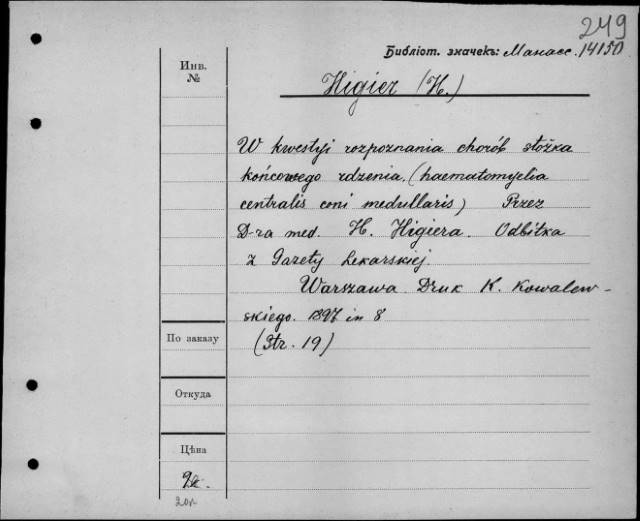 249
Библіот. значекъ: Манасс. 14150
Инв.
№
Higier (H.)
W kwestyi rozpoznania chorób stożka
końcowego rdzenia. (haematomyelia
centralis coni medullaris) Przez
D-ra med. H. Higiera. Odbitka
z Gazety Lekarskiej.
Warszawa Druk K. Kowalew-
skiego. 1897 in 8
(Str. 19)
По заказу
Откуда
Цѣна